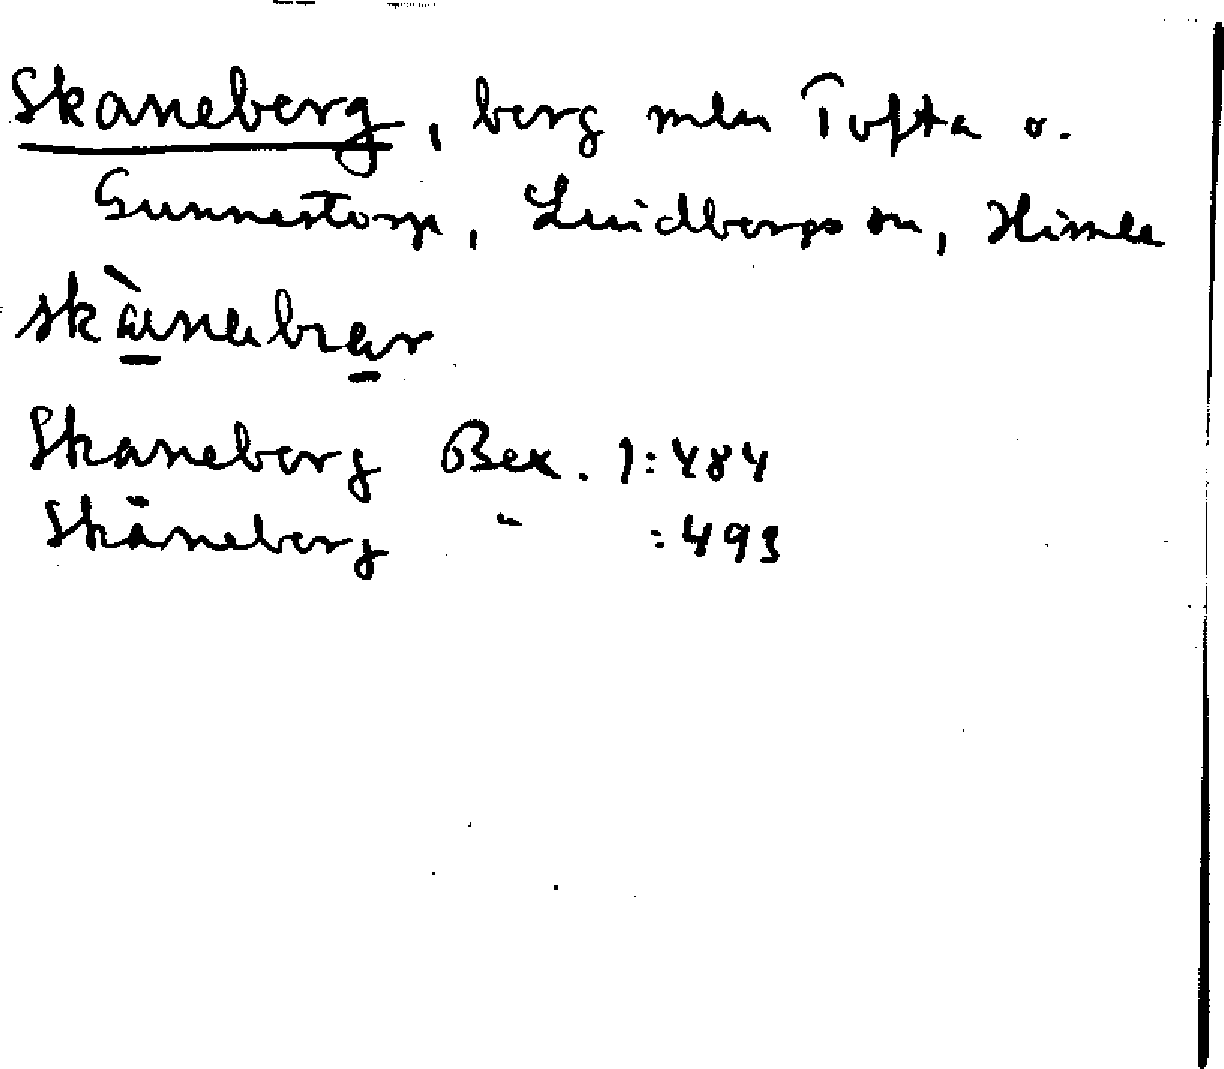 Skaneberg, berg mlan Tofta o.
Gunnestorp, Lindbergs sn, Himle
Skaneberg Bex. 1:484
Skäneberg " :493